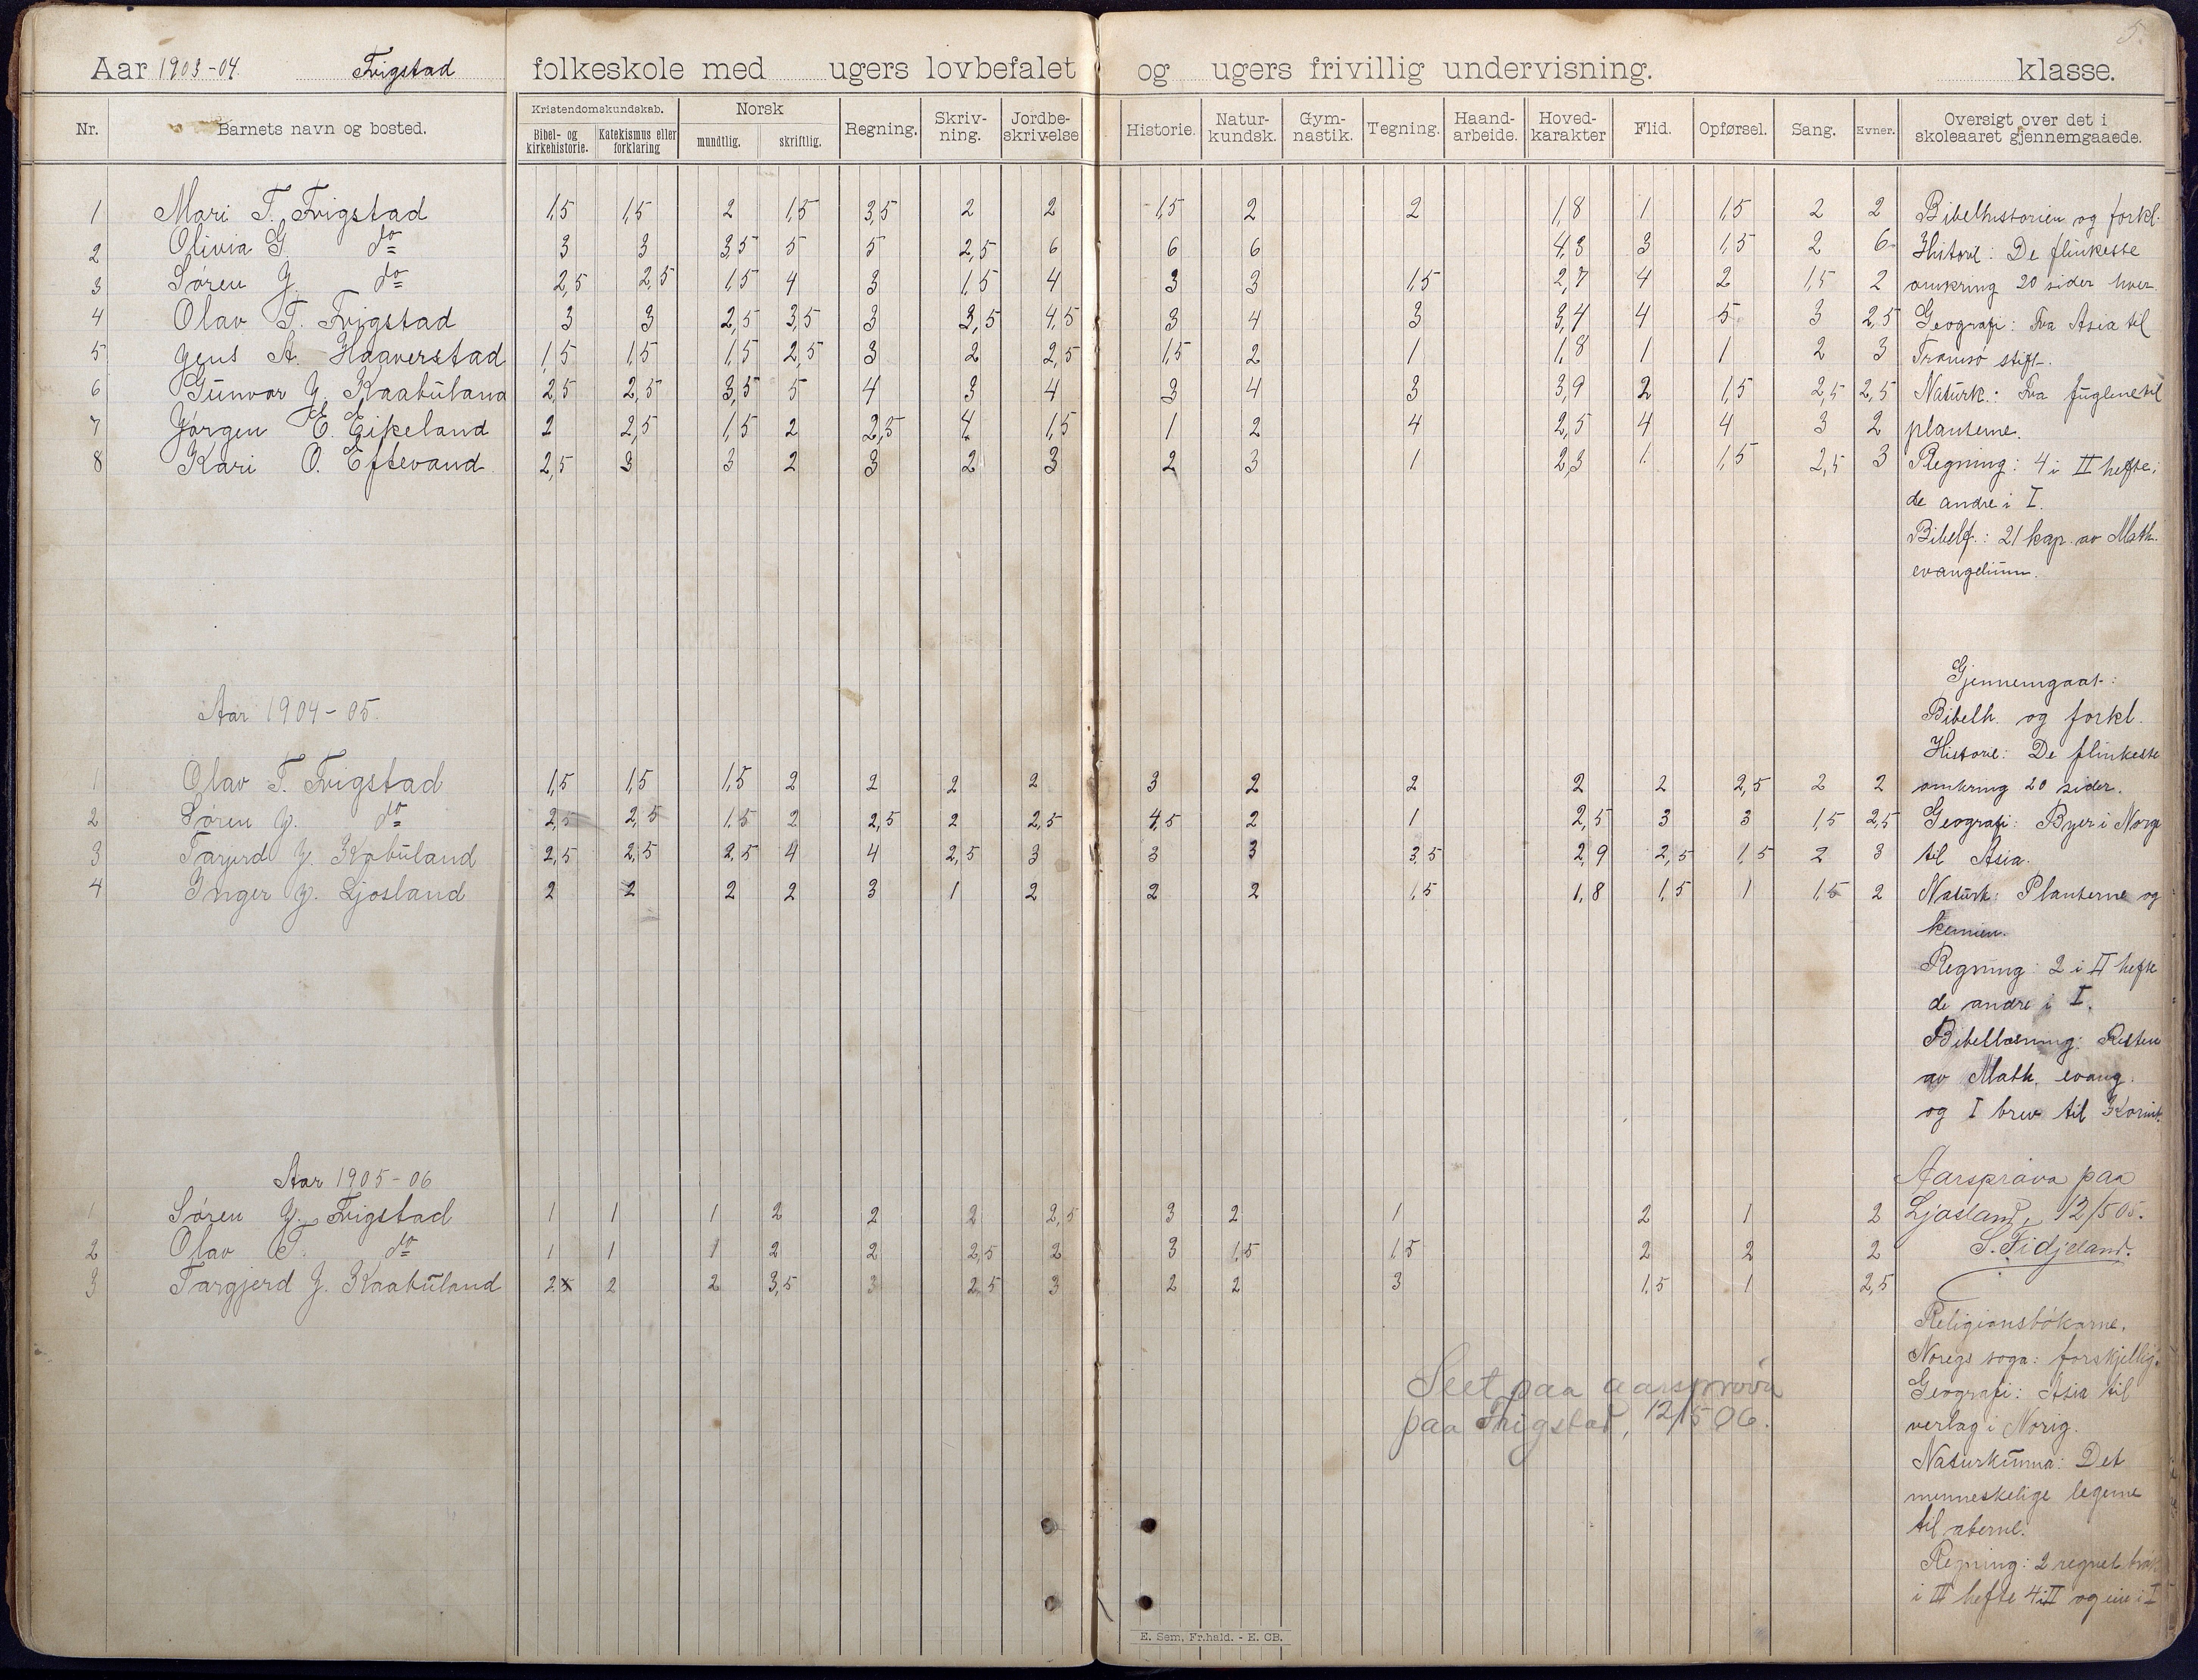 5.
Aar 1903-04. Frigstad folkeskole med ugers lovbefalet og ugers frivillig undervisning. klasse.
Nr. Barnets navn og bosted. Kristendomskundskab. Bibel- og kirkehistorie. Katekismus eller forklaring Norsk mundtlig. skriftlig. Regning. Skriv-ning. Jordbe-skrivelse Historie. Natur-kundsk. Gym-nastik. Tegning. Haand-arbeide. Hoved-karakter Flid. Opførsel. Sang. Evner. Oversigt over det i skoleaaret gjennemgaaede.
1 Mari T. Frigstad 1,5 1,5 2 1,5 3,5 2 2 1,5 2 2 1,8 1 1,5 2 2 Bibelhistorien og forkl.
2 Olivia G. do 3 3 3,5 5 5 2,5 6 6 6 4,3 3 1,5 2 6 Historie: De flinkeste
3 Søren J. do 2,5 2,5 1,5 4 3 1,5 4 3 3 1,5 2,7 4 2 1,5 2 omkring 20 sider hver.
4 Olav T. Frigstad 3 3 2,5 3,5 3 3,5 4,5 3 4 3 3,4 4 5 3 2,5 Geografi: Fra Asia til
5 Jens A. Haaverstad 1,5 1,5 1,5 2,5 3 2 2,5 1,5 2 1 1,8 1 1 2 3 Tromsø stift.
6 Gunvor J. Kaabuland 2,5 2,5 3,5 5 4 3 4 3 4 3 3,9 2 1,5 2,5 2,5 Naturk.: Fra fuglene til
7 Jørgen E. Eikeland 2 2,5 1,5 2 2,5 4 1,5 1 2 4 2,5 4 4 3 2 planterne.
8 Kari O. Eftevand 2,5 3 3 2 3 2 3 2 3 1 2,3 1 1,5 2,5 3 Regning: 4 i II hefte;
de andre i I.
Bibell.: 21 kap. av Math.
evangelium.
Gjennemgaat:
Aar 1904-05. Bibelh. og forkl.
Historie: De flinkeste
1 Olav T. Frigstad 1,5 1,5 1,5 2 2 2 2 3 2 2 2 2 2,5 2 2 omkring 20 sider.
2 Søren J. do 2,5 2,5 1,5 2 2,5 2 2,5 4,5 2 1 2,5 3 3 1,5 2,5 Geografi: Byer i Norge
3 Targerd J. Kabuland 2,5 2,5 2,5 4 4 2,5 3 3 3 3,5 2,9 2,5 1,5 2 3 til Asia.
4 Inger J. Ljosland 2 2 2 2 3 1 2 2 2 1,5 1,8 1,5 1 1,5 2 Naturk: Planterne og
kemien.
Regning: 2 i II hefte
de andre i I.
Bibellæsning: Resten
av Math. evang.
og I brev til Korint.
Aar 1905-06 Aarsprøva paa
1 Søren J. Frigstad 1 1 1 2 2 2 2,5 3 2 1 2 1 2 Ljosland, 12/5 05.
2 Olav T. do 1 1 1 2 2 2,5 2 3 1,5 1,5 2 2 2 S. Fidjeland.
3 Targjerd J. Kaabuland 2 2 2 3,5 3 2,5 3 2 2 3 1,5 1 2,5
Religionsbøkarne.
Noregs soga: forskjellig.
Seet paa aarsprøva Geografi: Asia til
paa Frigstad, 12/5 06. verlag i Norig.
Naturkunna: Det
menneskelige legeme
til aberne.
Regning: 2 regnet
i III hefte 4 i II og ein i I
E. Sem, Fr.hald. - E. CB.